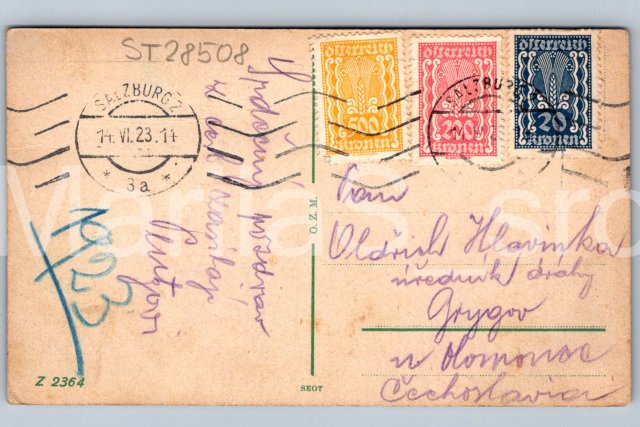 ST28508
SALZBURG 2
14.VI.23.14
* 3a *
österreich
500
kronen
österreich
200
kronen
österreich
20
kronen
SALZBURG
Srdečný pozdrav
z
1923
O.Z.M.
Pan
Oldřich Hlavinka
úředník dráhy
Grygov
u Olomouce
Čechoslavia
Z 2364
SKOT